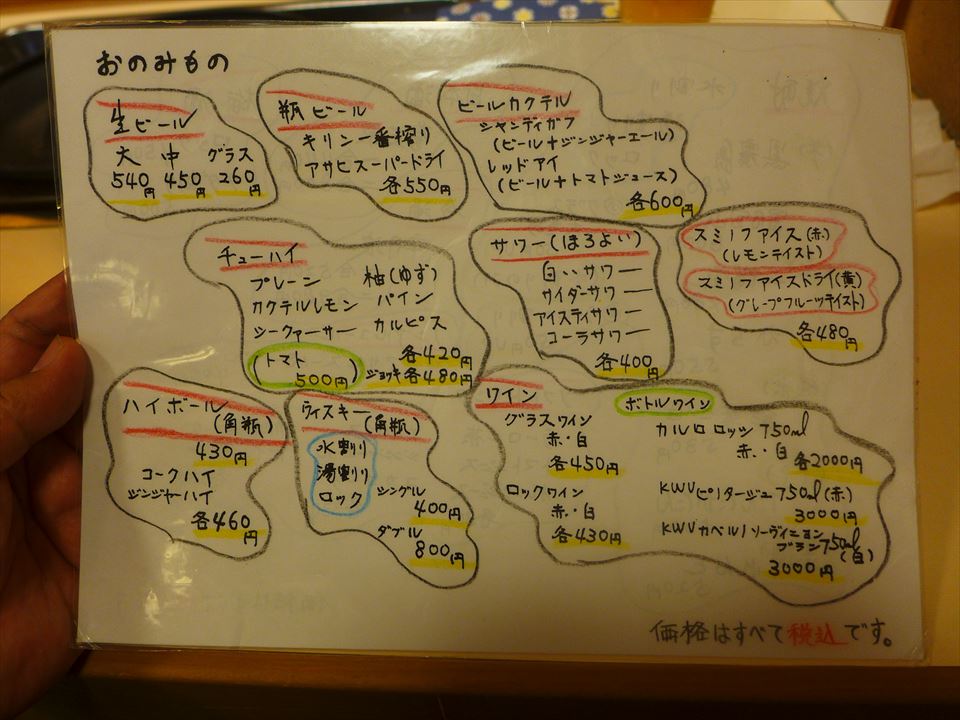 おのみもの
生ビール
大 中 グラス
540円 450円 260円
瓶ビール
キリン一番搾り
アサヒスーパードライ
各550円
ビールカクテル
シャンディガフ
(ビール+ジンジャーエール)
レッドアイ
(ビール+トマトジュース)
各600円
チューハイ
プレーン 柚(ゆず)
カクテルレモン パイン
シークァーサー カルピス
各420円
トマト
500円
ジョッキ各480円
サワー(ほろよい)
白いサワー
サイダーサワー
アイスティサワー
コーラサワー
各400円
スミノフアイス(赤)
(レモンテイスト)
スミノフアイスドライ(黄)
(グレープフルーツテイスト)
各480円
ハイボール
(角瓶)
430円
コークハイ
ジンジャーハイ
各460円
ウィスキー
(角瓶)
水割り
湯割り
ロック
シングル
400円
ダブル
800円
ワイン
グラスワイン
赤・白
各450円
ロックワイン
赤・白
各430円
ボトルワイン
カルロ ロッシ 750ml
赤・白
各2000円
KWVピノタージュ 750ml(赤)
3000円
KWVカベルノソーヴィニヨン
ブラン750ml
(白)
3000円
価格はすべて税込です。